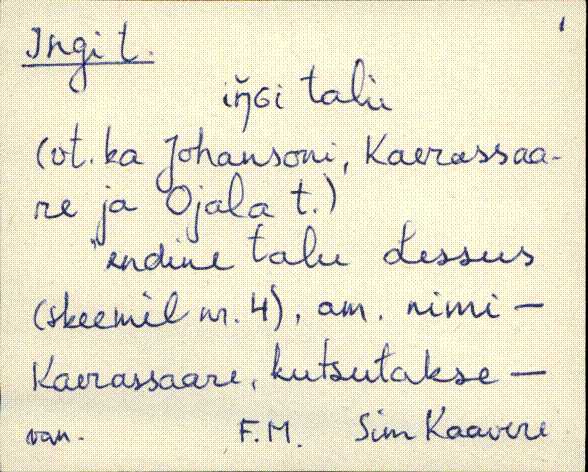 Ingi t.
iŋ̆Gi talu
(vt. ka Johansoni, Kaerassaa-
re ja Ojala t.)
endine talu Lessus
(skeemil nr. 4), am. nimi —
Kaerassaare, kutsutakse —
van. F.M. Sim Kaavere